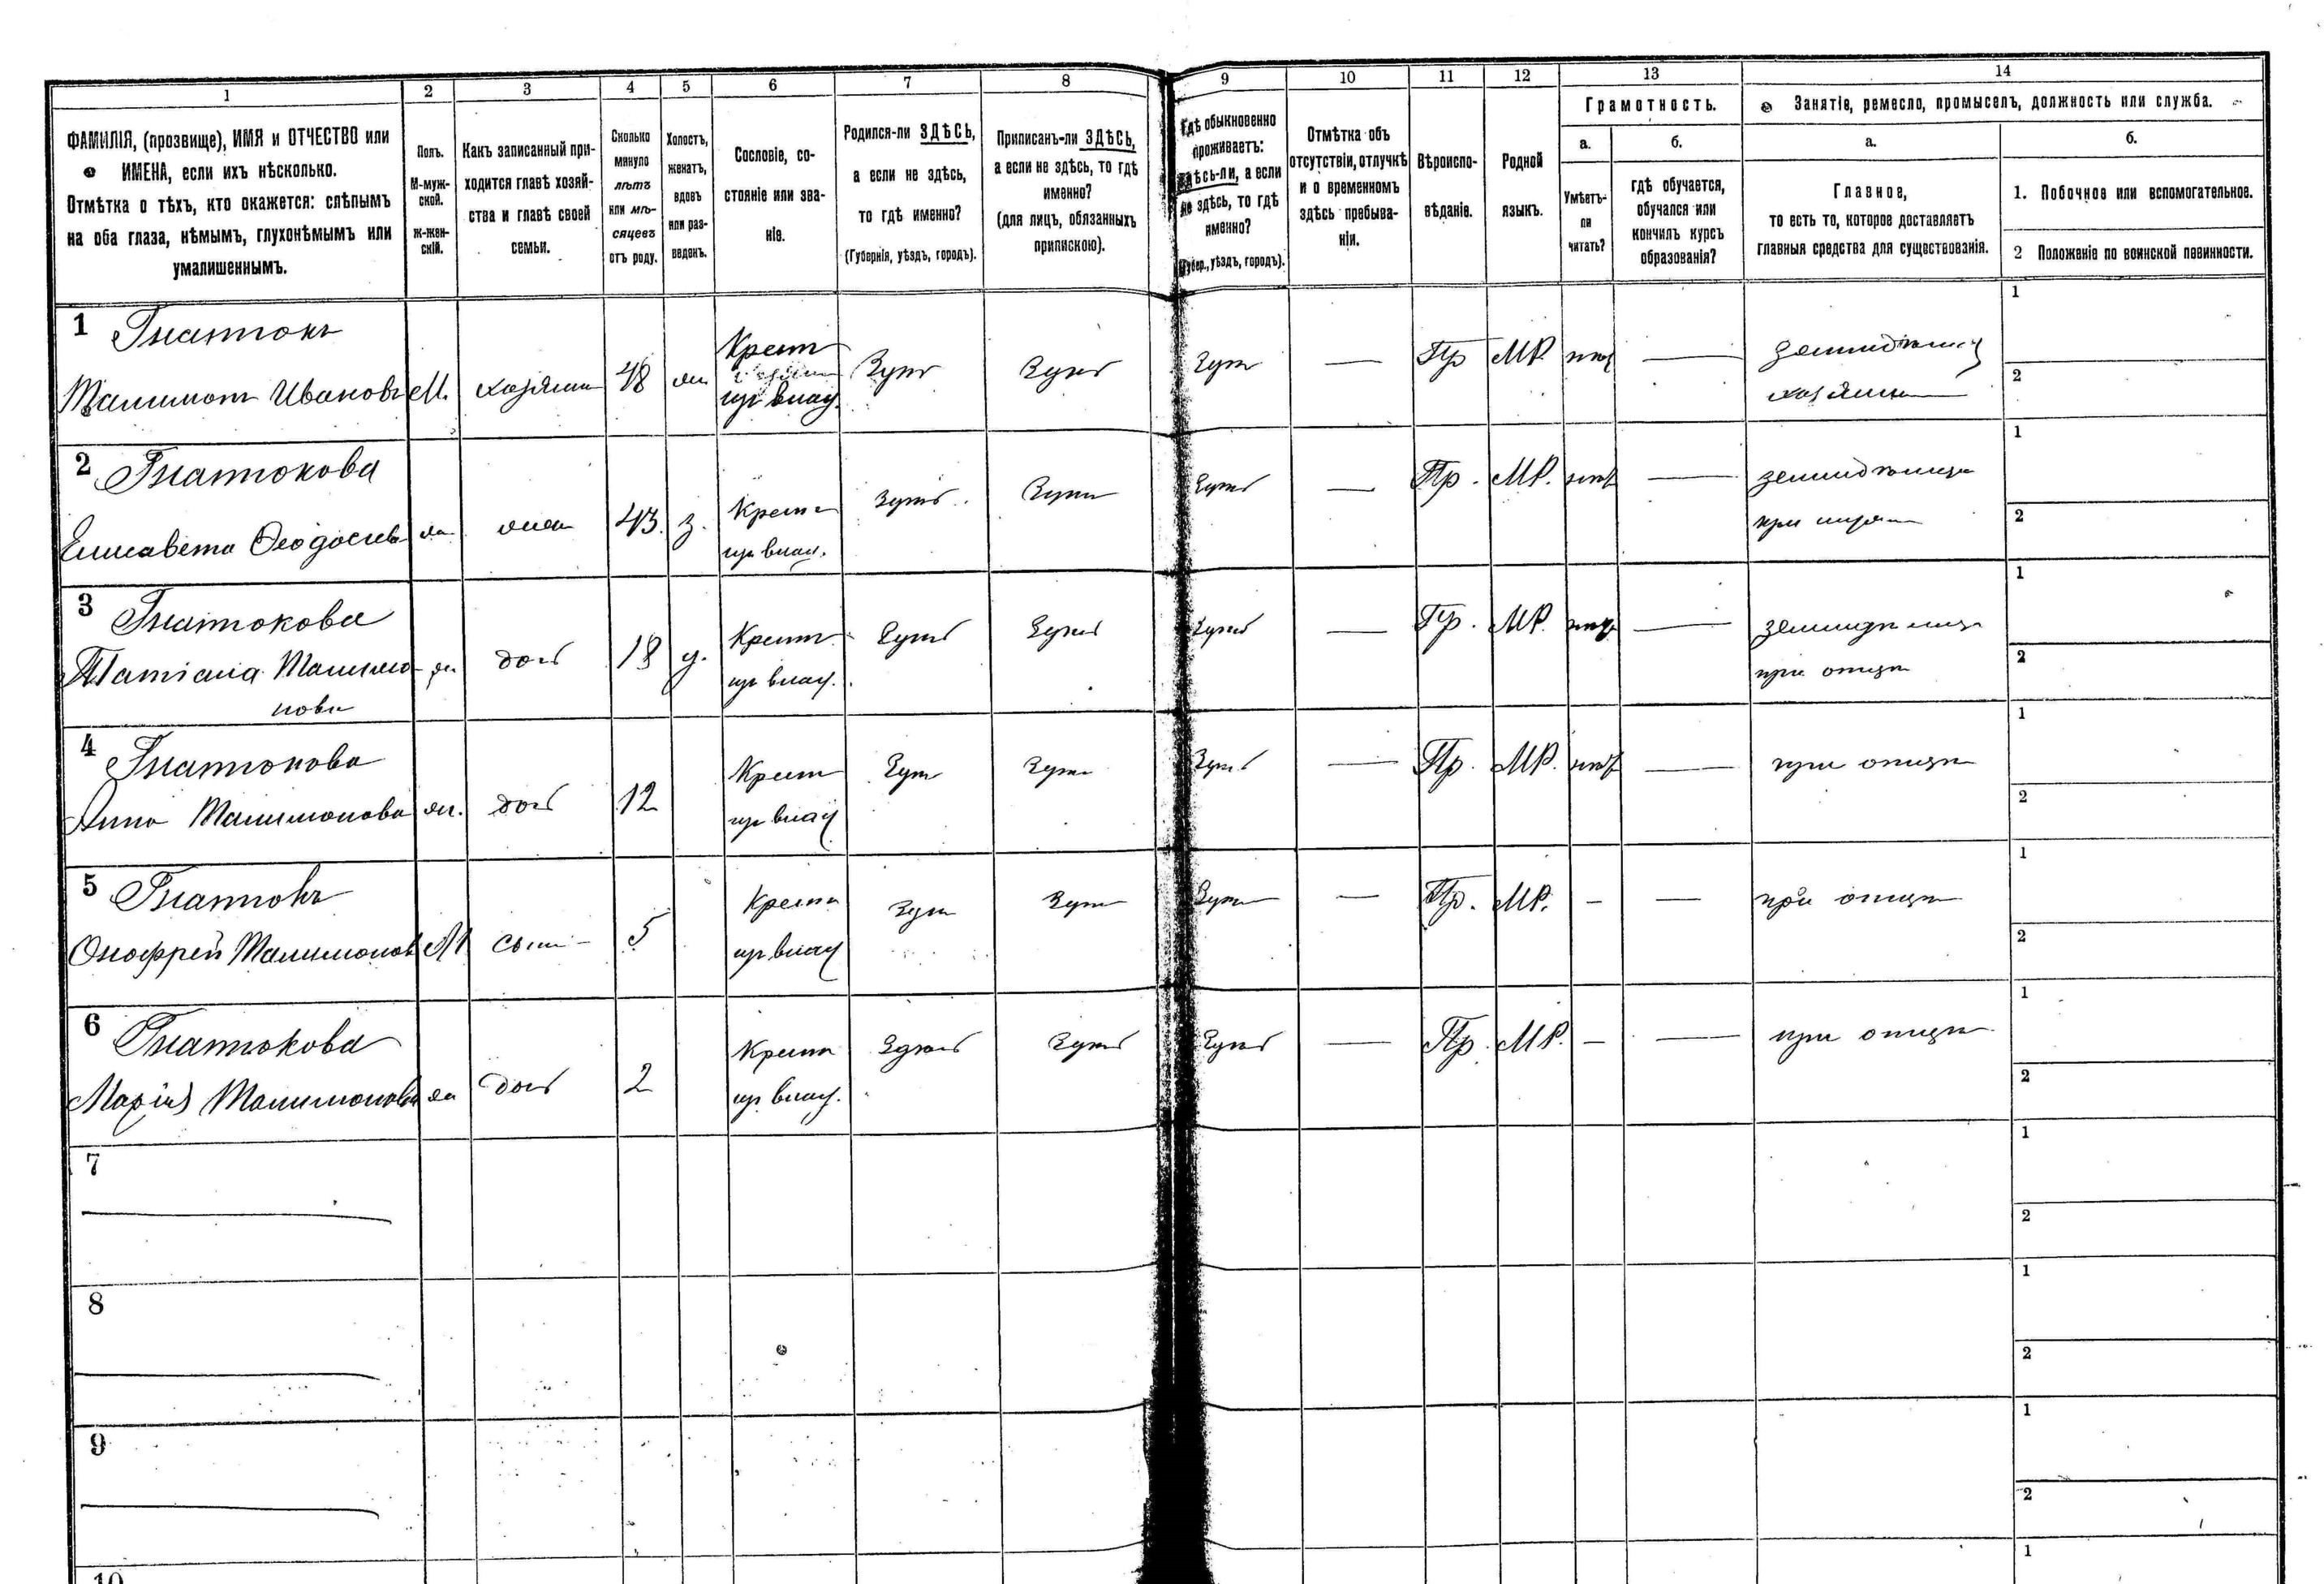 1 2 3 4 5 6 7 8 9 10 11 12 13 14
ФАМИЛІЯ, (прозвище), ИМЯ и ОТЧЕСТВО или
ИМЕНА, если ихъ нѣсколько.
Отмѣтка о тѣхъ, кто окажется: слѣпымъ
на оба глаза, нѣмымъ, глухонѣмымъ или
умалишеннымъ.
Полъ.
М-муж-
ской.
Ж-жен-
скій.
Какъ записанный при-
ходится главѣ хозяй-
ства и главѣ своей
семьи.
Сколько
минуло
лѣтъ
или мѣ-
сяцевъ
отъ роду.
Холостъ,
женатъ,
вдовъ
или раз-
веденъ.
Сословіе, со-
стояніе или зва-
ніе.
Родился-ли ЗДѢСЬ,
а если не здѣсь,
то гдѣ именно?
(Губернія, уѣздъ, городъ).
Приписанъ-ли ЗДѢСЬ,
а если не здѣсь, то гдѣ
именно?
(для лицъ, обязанныхъ
припискою).
Гдѣ обыкновенно
проживаетъ:
здѣсь-ли, а если
не здѣсь, то гдѣ
именно?
(Губер., уѣздъ, городъ).
Отмѣтка объ
отсутствіи, отлучкѣ
и о временномъ
здѣсь пребыва-
ніи.
Вѣроиспо-
вѣданіе.
Родной
языкъ.
Грамотность.
а.
Умѣетъ-
ли
читать?
б.
гдѣ обучается,
обучался или
кончилъ курсъ
образованія?
Занятіе, ремесло, промыселъ, должность или служба.
а.
Главное,
то есть то, которое доставляетъ
главныя средства для существованія.
б.
1. Побочное или вспомогательное.
2 Положеніе по воинской повинности.
1 Гнатюкъ
Малимонъ Ивановъ М. хозяин 48 Крест Здѣсь Здѣсь Здѣсь — Пр МР. нѣт —
хозяин
1
2
2 Гнатюкова
Елисавета Ѳеодосіев жена 43. з. Крест Здѣсь Здѣсь Здѣсь — Пр. МР. нѣт —
1
2
3 Гнатюкова
Татіана Малимо- дочь 18 д. Крест Здѣсь Здѣсь Здѣсь — Пр. МР. нѣт —
нова
при отцѣ
1
2
4 Гнатюкова
Анна Малимонова ж. дочь 12 Крест Здѣсь Здѣсь Здѣсь — Пр. МР. нѣт — при отцѣ
1
2
5 Гнатюкъ
Онофрей Малимонов М сын 5 Крест Здѣсь Здѣсь Здѣсь — Пр. МР. — — при отцѣ
1
2
6 Гнатюкова
Марія Малимонова ж дочь 2 Крест Здѣсь Здѣсь Здѣсь — Пр. МР. — — при отцѣ
1
2
7
1
2
8
1
2
9
1
2
10
1